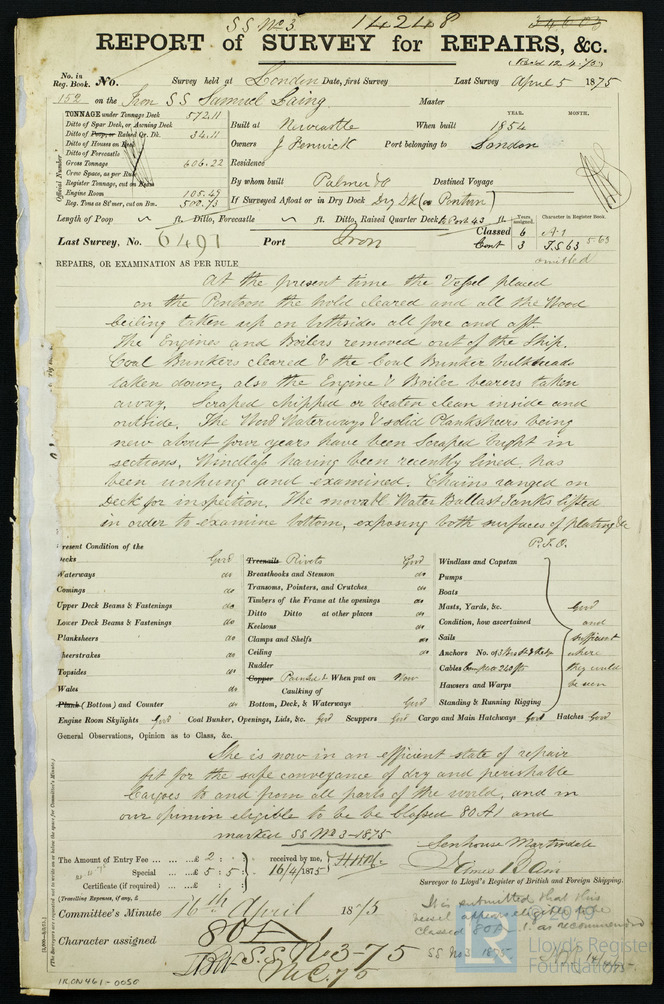 SS No 3 14248
REPORT of SURVEY for REPAIRS, &c.
No. in Reg. Book. No. Survey held at London Date, first Survey Last Survey April 5 1875
152 on the Iron SS Samuel Laing Master
TONNAGE under Tonnage Deck 572.11
Ditto of Spar Deck, or Awning Deck
Ditto of Poop, or Raised Qr. Dk. 34.11
Ditto of Houses on Deck
Ditto of Forecastle
Gross Tonnage 606.22
Crew Space, as per Rule
Register Tonnage, cut on Beam
Engine Room 105.49
Reg. Tons as St'mer, cut on Bm. 500.73
Official Number
YEAR. MONTH.
Built at Newcastle When built 1854
Owners J Fenwick Port belonging to London
Residence
By whom built Palmer & Co Destined Voyage
If Surveyed Afloat or in Dry Dock Dry Dk (or Pontoon)
Length of Poop ft. Ditto, Forecastle ft. Ditto, Raised Quarter Deck 43 ft.
Years assigned. Character in Register Book.
Classed 6 A1
Cont 3 T.S 63 5-63
omitted
Last Survey, No. 6491 Port Iron
REPAIRS, OR EXAMINATION AS PER RULE
At the present time the Vessel placed
on the Pontoon the hold cleared and all the Wood
ceiling taken up on bothsides all fore and aft.
The Engines and Boilers removed out of the Ship.
Coal Bunkers cleared & the Coal Bunker bulkheads
taken down, also the Engine & Boiler bearers taken
away. Scraped chipped or beaten clean inside and
outside. The Wood Waterways & solid Planksheers being
new about four years have been Scraped bright in
sections. Windlass having been recently lined, has
been unhung and examined. Chains ranged on
Deck for inspection. The movable Water Ballast Tanks lifted
in order to examine bottom, exposing both surfaces of plating &c
P.T.O.
Present Condition of the
Decks Good
Waterways do
Comings do
Upper Deck Beams & Fastenings do
Lower Deck Beams & Fastenings do
Planksheers do
Sheerstrakes do
Topsides do
Wales do
Plank (Bottom) and Counter do
Treenails Rivets Good
Breasthooks and Stemson do
Transoms, Pointers, and Crutches do
Timbers of the Frame at the openings do
Ditto Ditto at other places do
Keelsons do
Clamps and Shelfs do
Ceiling do
Rudder do
Copper Painted When put on Now
Caulking of
Bottom, Deck, & Waterways Good
Windlass and Capstan
Pumps
Boats
Masts, Yards, &c.
Condition, how ascertained
Sails
Anchors No. of
Cables
Hawsers and Warps
Standing & Running Rigging
Good
and
sufficient
where
they could
be seen
Engine Room Skylights Good Coal Bunker, Openings, Lids, &c. Good Scuppers Good Cargo and Main Hatchways Good Hatches Good
General Observations, Opinion as to Class, &c.
She is now in an efficient state of repair
fit for the safe conveyance of dry and perishable
Cargoes to and from all parts of the world, and in
our opinion eligible to be be Classed 80 A1 and
marked SS No 3-1875
Senhouse Martindale
The Amount of Entry Fee ... ... £ 2 : :
Special ... £ 5 : 5 :
Certificate (if required) ... £ : :
(Travelling Expenses, if any, £
received by me,
16/4/1875
Surveyor to Lloyd's Register of British and Foreign Shipping.
Committee's Minute 16th April 1875
Character assigned 80 A
S.S. No 3-75
N.C. 75
It is submitted that this
vessel appears eligible to be
classed 80 A 1. as recommended
SS No 3 1875
© 2019
Lloyd's Register
Foundation
IRON461-0050